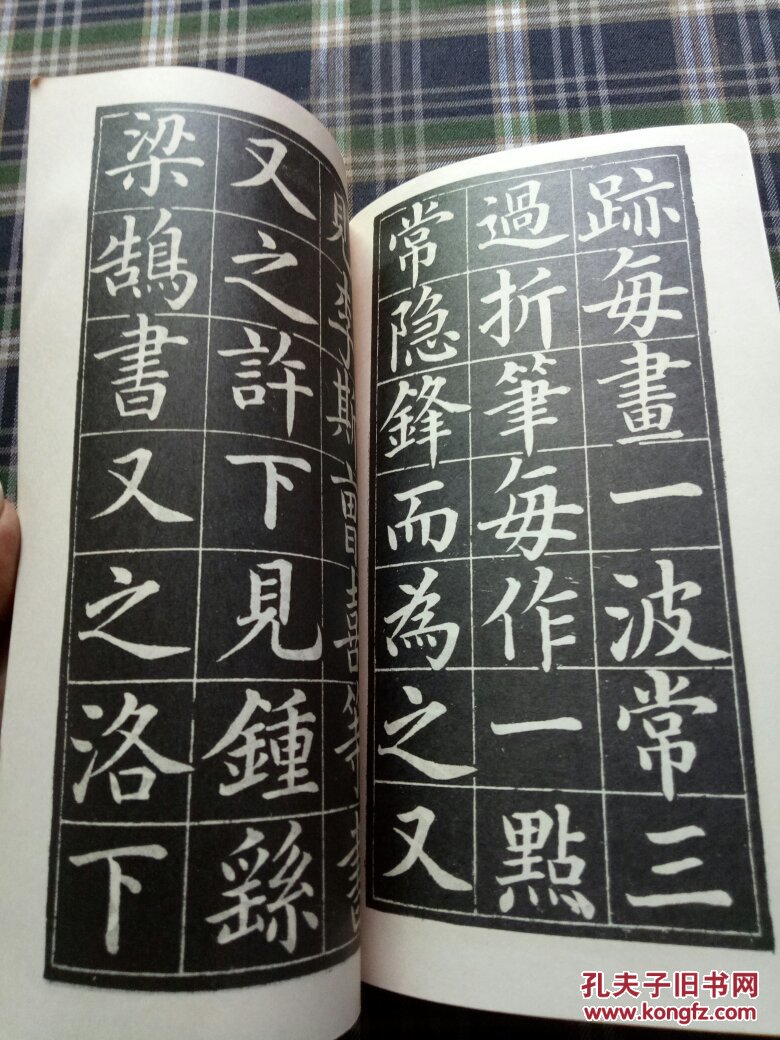 跡毎畫一波常三
過折筆毎作一點
常隐鋒而為之又
李斯曹喜等書
又之許下見鍾繇
梁鵠書又之洛下
孔夫子旧书网
www.kongfz.com